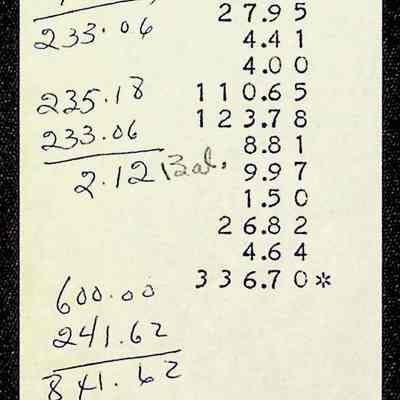 233.06
235.18
233.06
2.12 Bal.
600.00
241.62
841.62
27.95
4.41
4.00
110.65
123.78
8.81
9.97
1.50
26.82
4.64
336.70*